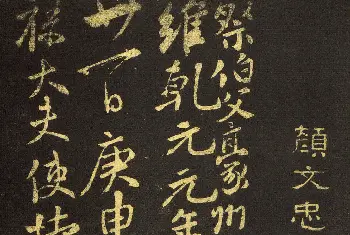 顏文忠
祭伯父豪州
維乾元元年
廿一日庚申
祿大夫使持